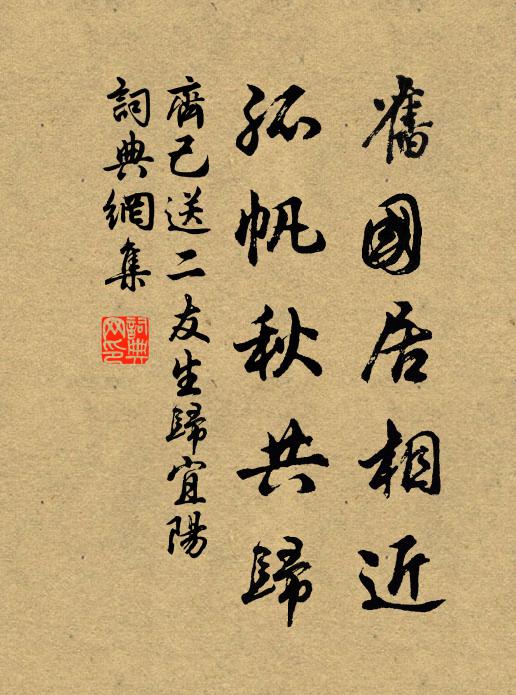 舊國居相近
孤帆秋共歸
齊己送二友生歸宜陽
詞典網集
詞典網印